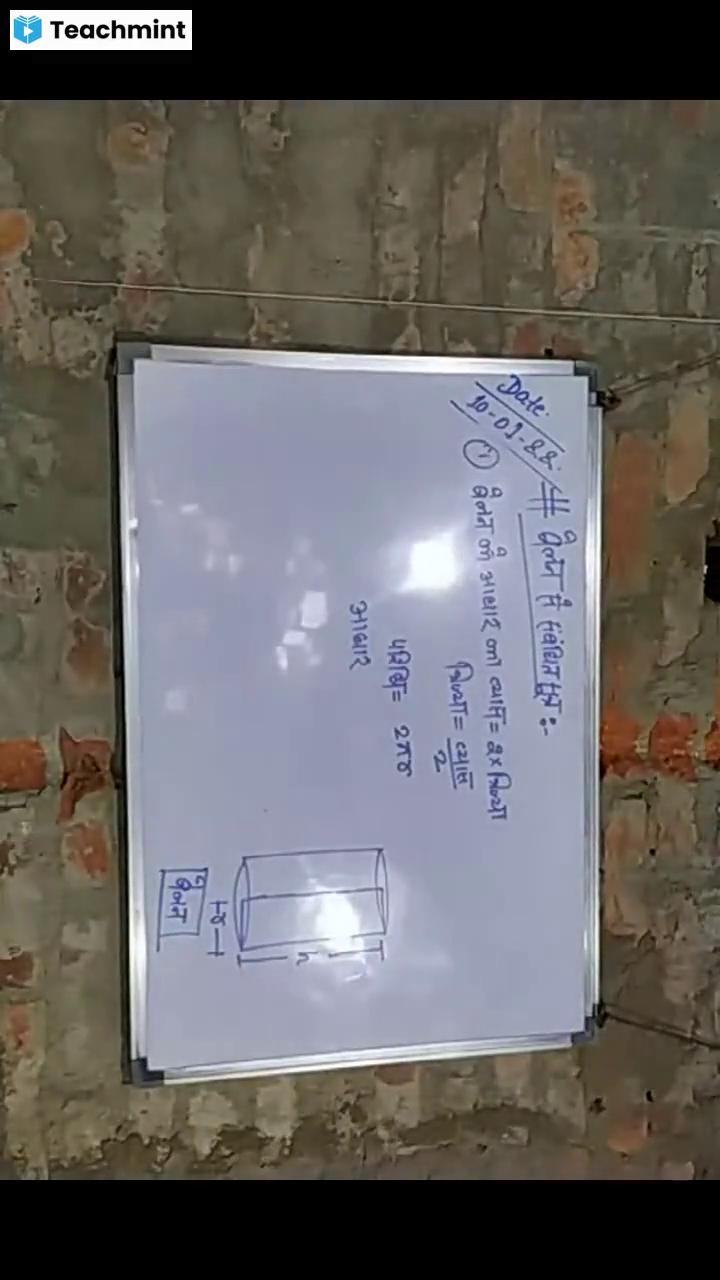 Teachmint
Date.
10-01-22.
# बेलन से संबंधित सूत्र :-
① बेलन के आधार का व्यास = 2 x त्रिज्या
त्रिज्या = व्यास
2
परिधि = 2πr
आधार
h
r
बेलन